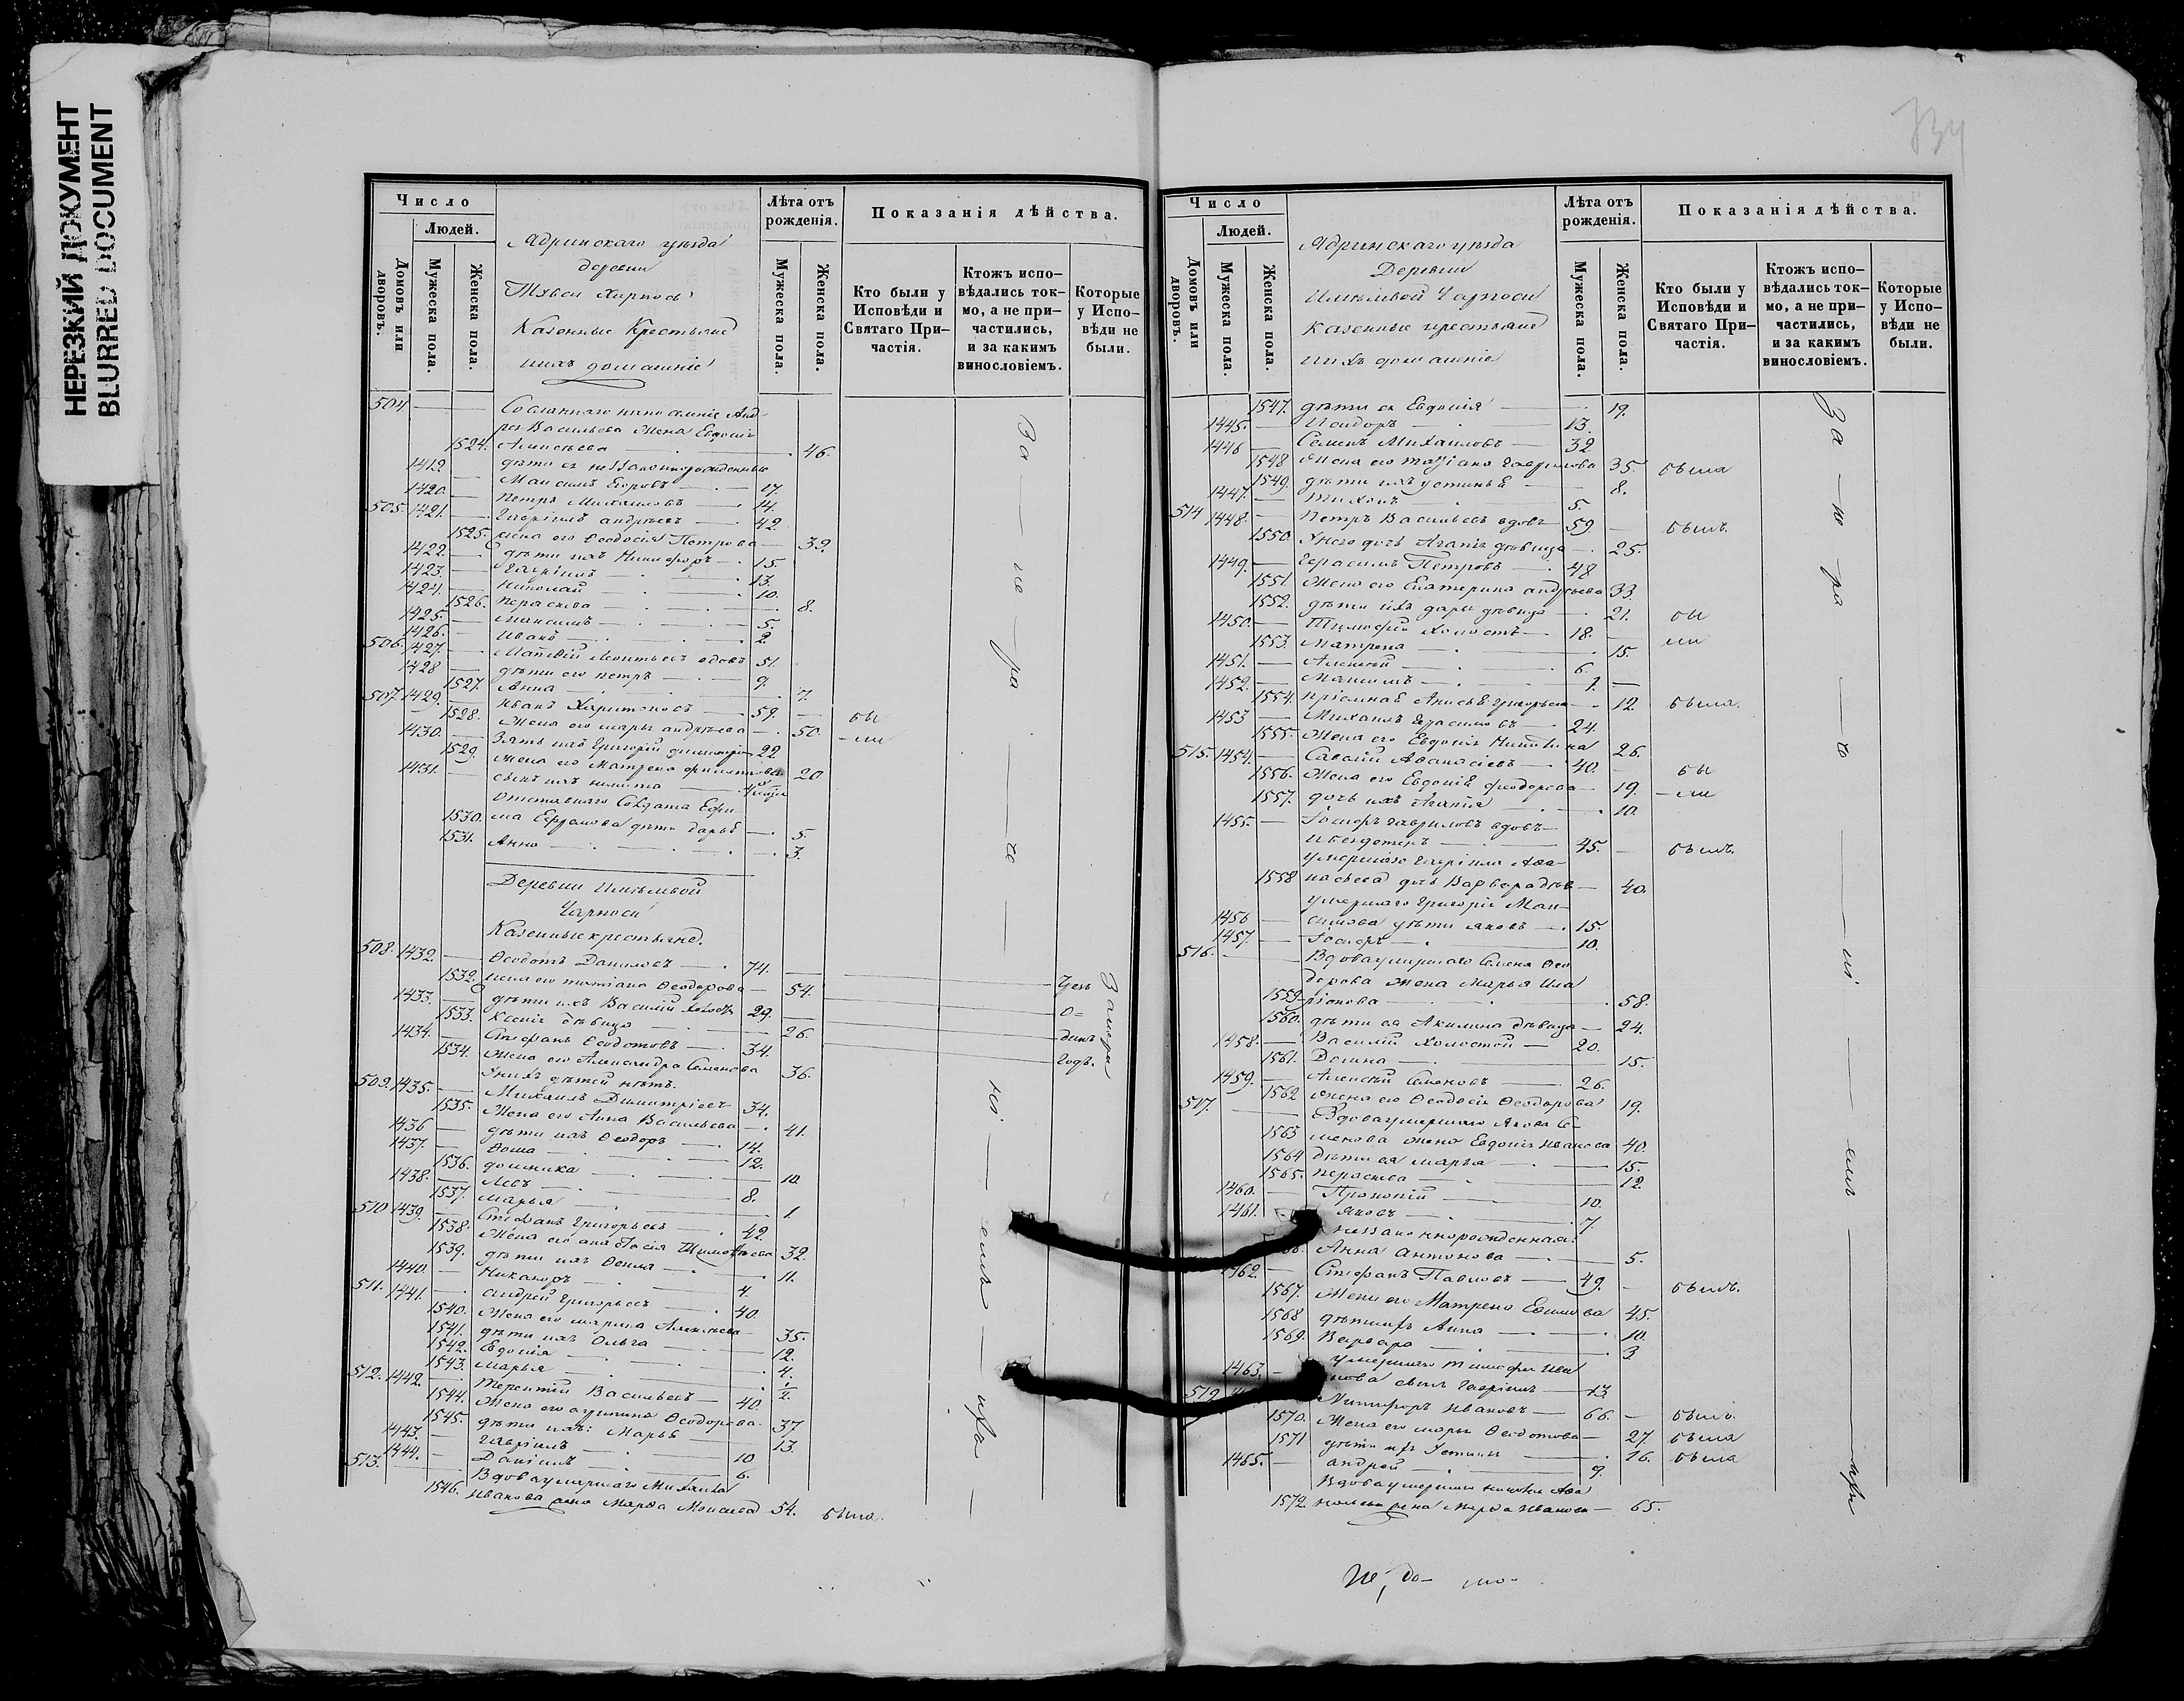 НЕРЕЗКИЙ ДОКУМЕНТ
BLURRED DOCUMENT
Число
Людей.
Домовъ или дворовъ.
Мужеска пола.
Женска пола.
Ядринскаго уѣзда
деревни
Казенные Крестьяне
ихъ домашніе
Лѣта отъ рожденія.
Мужеска пола.
Женска пола.
Показанія дѣйства.
Кто были у Исповѣди и Святаго Причастія.
Ктожъ исповѣдались токмо, а не причастились, и за какимъ винословіемъ.
Которые у Исповѣди не были.
504
Васильева жена Евдокія
1524. Алексѣева 46.
1419. дѣти ея незаконнорожденные
Максимъ Егоровъ 17.
1420. Петръ Михаиловъ 14.
505. 1421. Гавріилъ Андреевъ 42.
1525. жена его Ѳеодосія Петрова 39.
1422. дѣти ихъ Никифоръ 15.
1423. Гавріилъ 13.
1424. Николай 10.
1526. Параскева 8.
1425. Максимъ 5.
1426. Иванъ 2.
506. 1427. Матвѣй Леонтьевъ вдовъ 51.
1428 дѣти его Петръ 9.
1527. Анна 7.
507. 1429. Иванъ Харитоновъ 59. бы
1528. Жена его Марья Андреева 50. ли
1430. Зять ихъ Григорій 22
1529. жена его Матрена 20
1431. сынъ ихъ Никита
Отставнаго Солдата Ефи-
1530. ма дѣти Дарья 5.
1531. Анна 3.
Деревни
Чарпоси
Казенные крестьяне.
508. 1432. Ѳеодотъ Даниловъ 74.
1532. жена его Татіана Ѳеодорова 54.
1433. дѣти ихъ Василій холостъ 29.
1533. Ксенія дѣвица 26.
1434. Стефанъ Ѳеодотовъ 34.
1534. Жена его Александра Семенова 36.
У нихъ дѣтей нѣтъ.
509. 1435. Михаилъ Димитріевъ 34.
1535. Жена его Анна Васильева 41.
1436 дѣти ихъ Ѳеодоръ 14.
1437. Ѳома 12.
1536. Домника 10
1438. Левъ 8.
1537. Марья 1.
510 1439. Стефанъ Григорьевъ 42.
1538. Жена его Анастасія Тимоѳеева 32.
1539. дѣти ихъ Ѳекла 11.
1440. Никаноръ 4.
511. 1441. Андрей Григорьевъ 40.
1540. Жена его Марина Алексѣева 35.
1541. дѣти ихъ Ольга 12.
1542. Евдокія 4.
1543. Марья ½
512. 1442. Терентій Васильевъ 40.
1544. Жена его Агрипина Ѳеодорова 37
1545. дѣти ихъ: Марья 13.
1443. Гавріилъ 10
1444. Даніилъ 6.
513. Вдова умершаго Михаила
1546. Иванова жена Марѳа Моисеева 54. была.
За не ра че ні емъ
Число
Людей.
Домовъ или дворовъ.
Мужеска пола.
Женска пола.
Ядринскаго уѣзда
Деревни
Чарпоси
казенные крестьяне
ихъ домашніе
Лѣта отъ рожденія.
Мужеска пола.
Женска пола.
Показанія дѣйства.
Кто были у Исповѣди и Святаго Причастія.
Ктожъ исповѣдались токмо, а не причастились, и за какимъ винословіемъ.
Которые у Исповѣди не были.
1547. дѣти ея Евдокія 19.
1445. Исидоръ 13.
1446 Семенъ Михаиловъ 32
1548 Жена его Татіана Гаврилова 35. была
1549. дѣти ихъ Устинья 8.
1447. Тихонъ 5.
514 1448. Петръ Васильевъ вдовъ 59. былъ.
1550. У него дочь Агапія дѣвица 25.
1449. Герасимъ Петровъ 48
1551. Жена его Екатерина Андреева 33.
1552. дѣти ихъ Дарья дѣвица 21. бы
1450. Тимофей Холостъ 18. ли
1553. Матрена 15.
1451. Алексѣй 6.
1452. Максимъ 1.
1554. пріемная Анисья Григорьева 12. была.
1453 Михаилъ Герасимовъ 24.
1555. Жена его Евдокія Никитина 26.
515. 1454. Савелій Аѳанасіевъ 40. бы
1556. Жена его Евдокія Феодорова 19. ли
1557. дочь ихъ Агапія 10.
1455. Іосифъ Гавриловъ вдовъ
и бездетенъ 45. былъ.
умершаго Гавріила Аѳа-
1558 насьева дочь Варвара дѣв 40.
умершаго Григорія Мак-
1456 симова дѣти Яковъ 15.
1457. Іосифъ 10.
516. Вдова умершаго Семена Ѳео
дорова жена Марья Ила
1559. ріонова 58.
1560. дѣти ея Акилина дѣвица 24.
1458. Василій Холостой 20.
1561. Домна 15.
1459. Алексѣй Семеновъ 26.
1562 жена его Ѳеодосія Ѳеодорова 19.
517. Вдова умершаго Якова Се-
1563 менова жена Евдокія Иванова 40.
1564 дѣти ея Марья 15.
1565. Параскева 12.
1460. Прокопій 10.
1461. Яковъ 7.
незаконнорожденная
Анна Антонова 5.
1462. Стефанъ Павловъ 49. былъ.
1567. Жена его Матрена Ефимова 45.
1568 дѣти ихъ Анна 10.
1569. Варвара 3
умершаго Тимофея Ива
1463. нова сынъ Гавріилъ 13
519 Никифоръ Ивановъ 66. былъ.
1570. Жена его Марья Ѳеодотова 27. была
1571 дѣти ихъ Устинья 16. была
1465. Андрей 9.
Вдова умершаго
1572. жена Марѳа Иванова 65.
За не ра че ні емъ